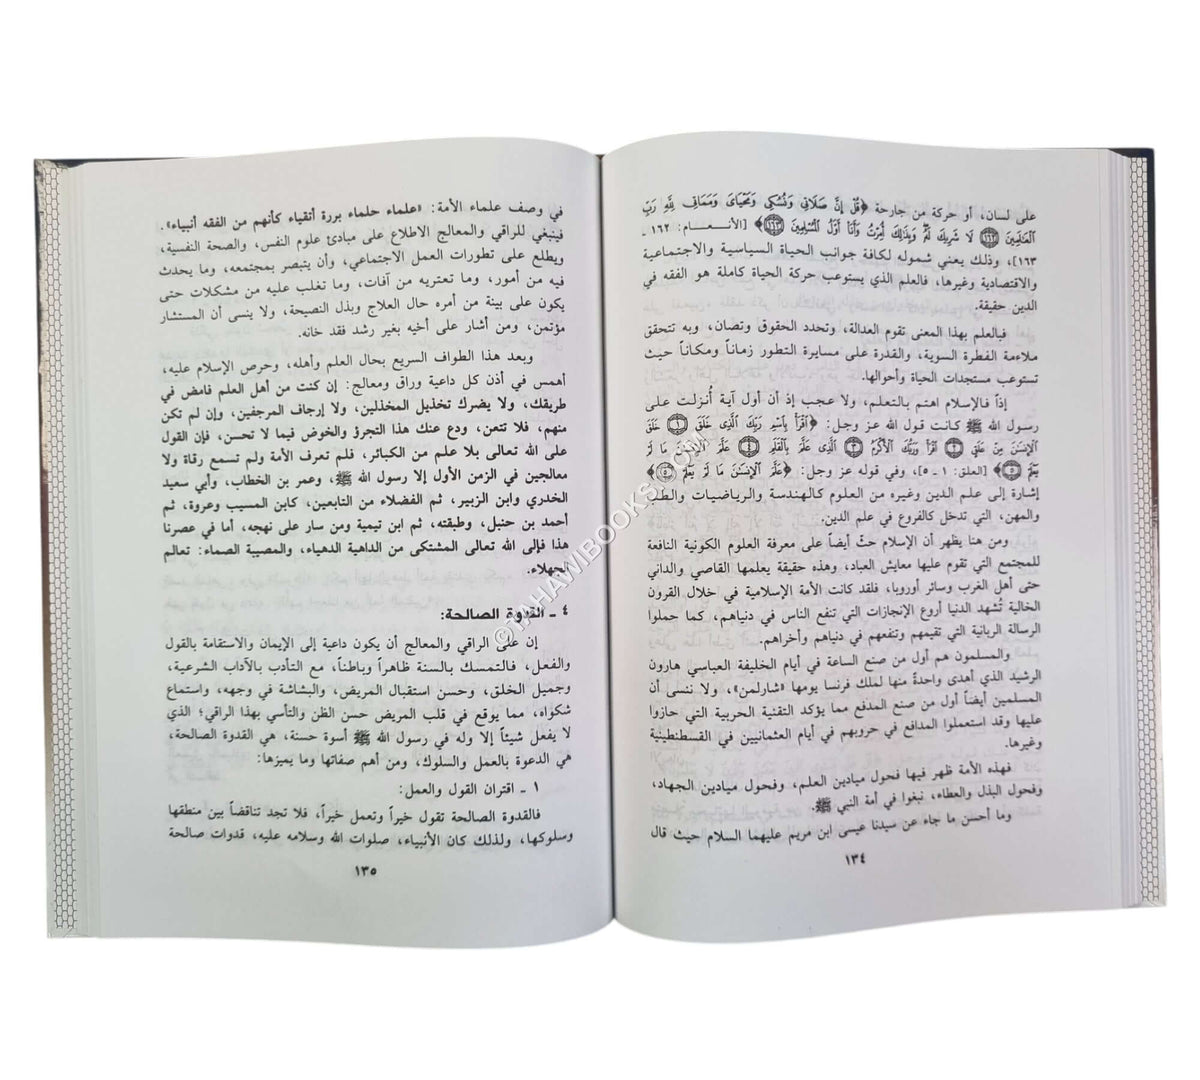 على لسان، أو حركة من جارحة ﴿قُلْ إِنَّ صَلَاتِي وَنُسُكِي وَمَحْيَايَ وَمَمَاتِي لِلَّهِ رَبِّ
الْعَالَمِينَ ١٦٢ لَا شَرِيكَ لَهُ وَبِذَلِكَ أُمِرْتُ وَأَنَا أَوَّلُ الْمُسْلِمِينَ ١٦٣﴾ [الأنعام: ١٦٢ ـ
١٦٣]، وذلك يعني شموله لكافة جوانب الحياة السياسية والاجتماعية
والاقتصادية وغيرها، فالعلم الذي يستوعب حركة الحياة كاملة هو الفقه في
الدين حقيقة.
فبالعلم بهذا المعنى تقوم العدالة، وتحدد الحقوق وتصان، وبه تتحقق
ملاءمة الفطرة السوية، والقدرة على مسايرة التطور زماناً ومكاناً حيث
تستوعب مستجدات الحياة وأحوالها.
إذاً فالإسلام اهتم بالتعلم، ولا عجب إذ أن أول آية أُنزلت على
رسول الله ﷺ كانت قول الله عز وجل: ﴿اقْرَأْ بِاسْمِ رَبِّكَ الَّذِي خَلَقَ ١ خَلَقَ
الْإِنسَانَ مِنْ عَلَقٍ ٢ اقْرَأْ وَرَبُّكَ الْأَكْرَمُ ٣ الَّذِي عَلَّمَ بِالْقَلَمِ ٤ عَلَّمَ الْإِنسَانَ مَا لَمْ
يَعْلَمْ ٥﴾ [العلق: ١ ـ ٥]، وفي قوله عز وجل: ﴿عَلَّمَ الْإِنسَانَ مَا لَمْ يَعْلَمْ ٥﴾
إشارة إلى علم الدين وغيره من العلوم كالهندسة والرياضيات والطب
والمهن، التي تدخل كالفروع في علم الدين.
ومن هنا يظهر أن الإسلام حثّ أيضاً على معرفة العلوم الكونية النافعة
للمجتمع التي تقوم عليها معايش العباد، وهذه حقيقة يعلمها القاصي والداني
حتى أهل الغرب وسائر أوروبا، فلقد كانت الأمة الإسلامية في خلال القرون
الخالية تُشهد الدنيا أروع الإنجازات التي تنفع الناس في دنياهم، كما حملوا
الرسالة الربانية التي تقيمهم وتنفعهم في دنياهم وأخراهم.
والمسلمون هم أول من صنع الساعة في أيام الخليفة العباسي هارون
الرشيد الذي أهدى واحدةً منها لملك فرنسا يومها «شارلمن»، ولا ننسى أن
المسلمين أيضاً أول من صنع المدفع مما يؤكد التقنية الحربية التي حازوا
عليها وقد استعملوا المدافع في حروبهم في أيام العثمانيين في القسطنطينية
وغيرها.
فهذه الأمة ظهر فيها فحول ميادين العلم، وفحول ميادين الجهاد،
وفحول البذل والعطاء، نبغوا في أمة النبي ﷺ.
وما أحسن ما جاء عن سيدنا عيسى ابن مريم عليهما السلام حيث قال
١٣٤
في وصف علماء الأمة: «علماء حلماء بررة أتقياء كأنهم من الفقه أنبياء».
فينبغي للراقي والمعالج الاطلاع على مبادئ علوم النفس، والصحة النفسية،
ويطلع على تطورات العمل الاجتماعي، وأن يتبصر بمجتمعه، وما يحدث
فيه من أمور، وما تعتريه من آفات، وما تغلب عليه من مشكلات حتى
يكون على بينة من أمره حال العلاج وبذل النصيحة، ولا ينسى أن المستشار
مؤتمن، ومن أشار على أخيه بغير رشد فقد خانه.
وبعد هذا الطواف السريع بحال العلم وأهله، وحرص الإسلام عليه،
أهمس في أذن كل داعية وراق ومعالج: إن كنت من أهل العلم فامض في
طريقك، ولا يضرك تخذيل المخذلين، ولا إرجاف المرجفين، وإن لم تكن
منهم، فلا تتعن، ودع عنك هذا التجرؤ والخوض فيما لا تحسن، فإن القول
على الله تعالى بلا علم من الكبائر، فلم تعرف الأمة ولم تسمع رقاة ولا
معالجين في الزمن الأول إلا رسول الله ﷺ، وعمر بن الخطاب، وأبي سعيد
الخدري وابن الزبير، ثم الفضلاء من التابعين، كابن المسيب وعروة، ثم
أحمد بن حنبل، وطبقته، ثم ابن تيمية ومن سار على نهجه، أما في عصرنا
هذا فإلى الله تعالى المشتكى من الداهية الدهياء، والمصيبة الصماء: تعالم
الجهلاء.
٤ ـ القدوة الصالحة:
إن على الراقي والمعالج أن يكون داعية إلى الإيمان والاستقامة بالقول
والفعل، فالتمسك بالسنة ظاهراً وباطناً، مع التأدب بالآداب الشرعية،
وجميل الخلق، وحسن استقبال المريض، والبشاشة في وجهه، واستماع
شكواه، مما يوقع في قلب المريض حسن الظن والتأسي بهذا الراقي؛ الذي
لا يفعل شيئاً إلا وله في رسول الله ﷺ أسوة حسنة، هي القدوة الصالحة،
هي الدعوة بالعمل والسلوك، ومن أهم صفاتها وما يميزها:
١ ـ اقتران القول والعمل:
فالقدوة الصالحة تقول خيراً وتعمل خيراً، فلا تجد تناقضاً بين منطقها
وسلوكها، ولذلك كان الأنبياء، صلوات الله وسلامه عليه، قدوات صالحة
١٣٥
© TAHAWIBOOKS.COM